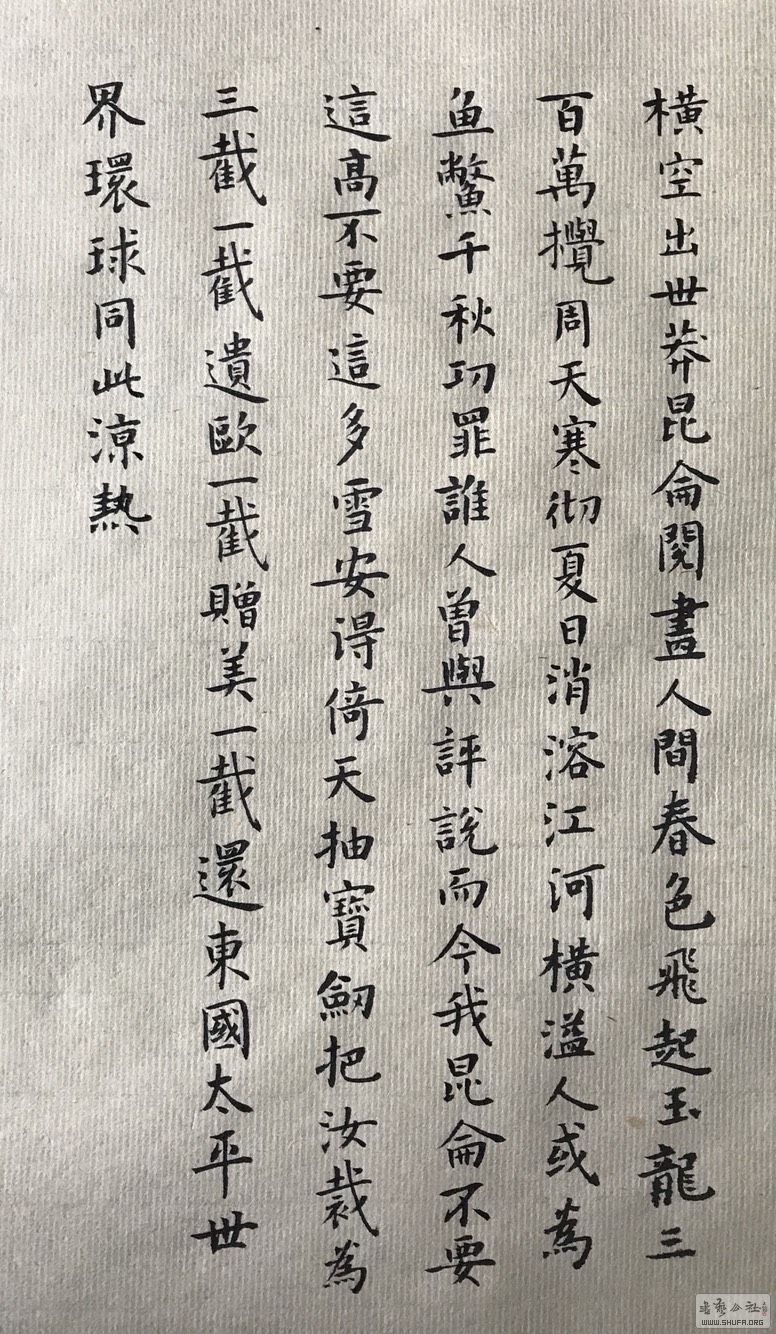 橫空出世莽昆侖閱盡人間春色飛起玉龍三
百萬攪周天寒彻夏日消溶江河橫溢人或為
鱼鱉千秋功罪誰人曾與評說而今我昆侖不要
這高不要這多雪安得倚天抽寶劒把汝裁為
三截一截遺歐一截贈美一截還東國太平世
界環球同此涼熱
書藝公社
WWW.SHUFA.ORG